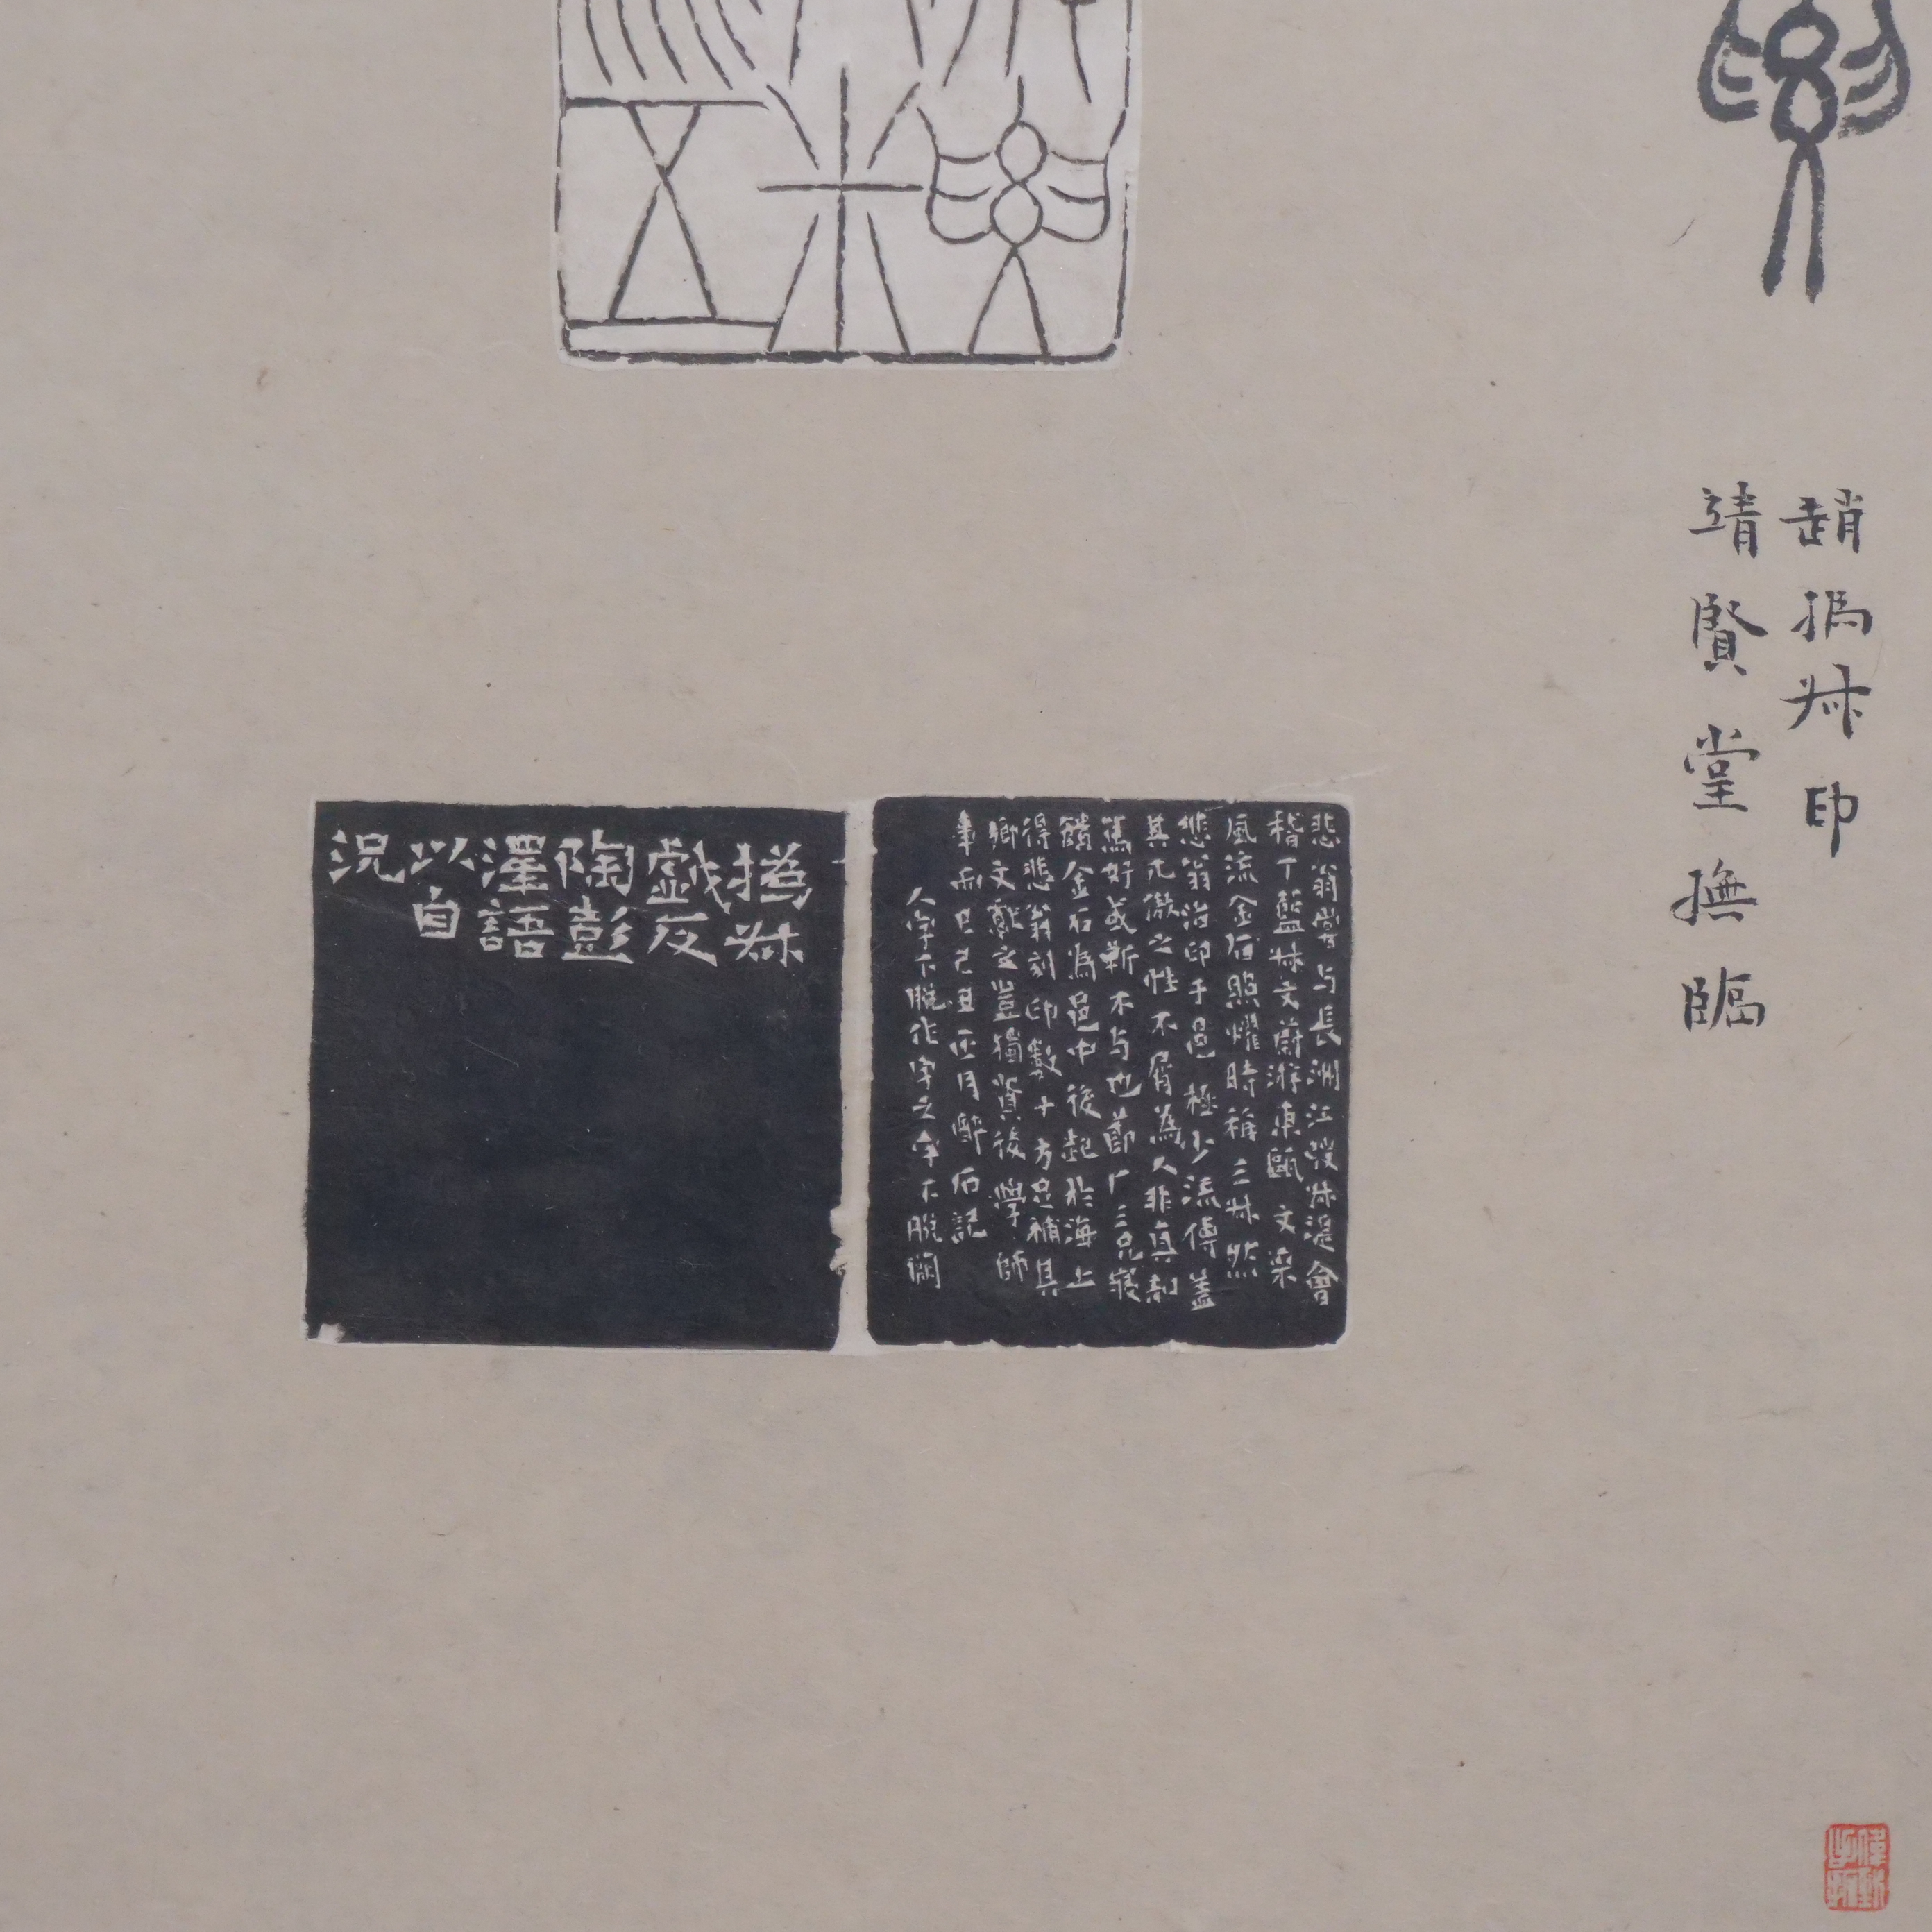 趙撝叔印
靖賢堂撫臨
悲翁嘗与長洲江弢叔湜會
稽丁藍叔文蔚游東甌文采
風流金石照燿時稱三叔然
悲翁治印手邑極少流傳蓋
其兀傲之性不屑為人非真知
篤好或靳不与也節厂三兄寢
饋金石為邑中後起於海上
得悲翁刻印數十方足補其
鄉文獻之豈獨資後學師
事而已己丑正月醉石記
人字下脫作字之字下脫闕
撝叔
戲反
陶彭
澤語
以自
況